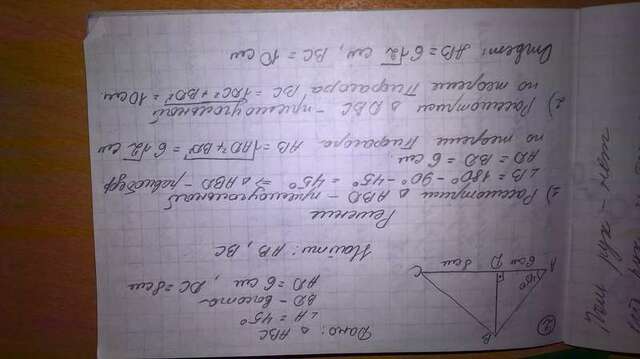 Дано: △ ABC
∠A = 45°
BD - высота
AD = 6 см, DC = 8 см
Найти: AB, BC
②
B
45°
A 6 см D 8 см C
Решение
1) Рассмотрим △ ABD - прямоугольный
∠B = 180° - 90° - 45° = 45° ⇒ △ABD - равнобедр
AD = BD = 6 см.
по теореме Пифагора AB = √AD²+BD² = 6√2 см
2) Рассмотрим △ DBC - прямоугольный
по теореме Пифагора, BC = √DC² + BD² = 10 см.
Ответ: AB = 6√2 см, BC = 10 см